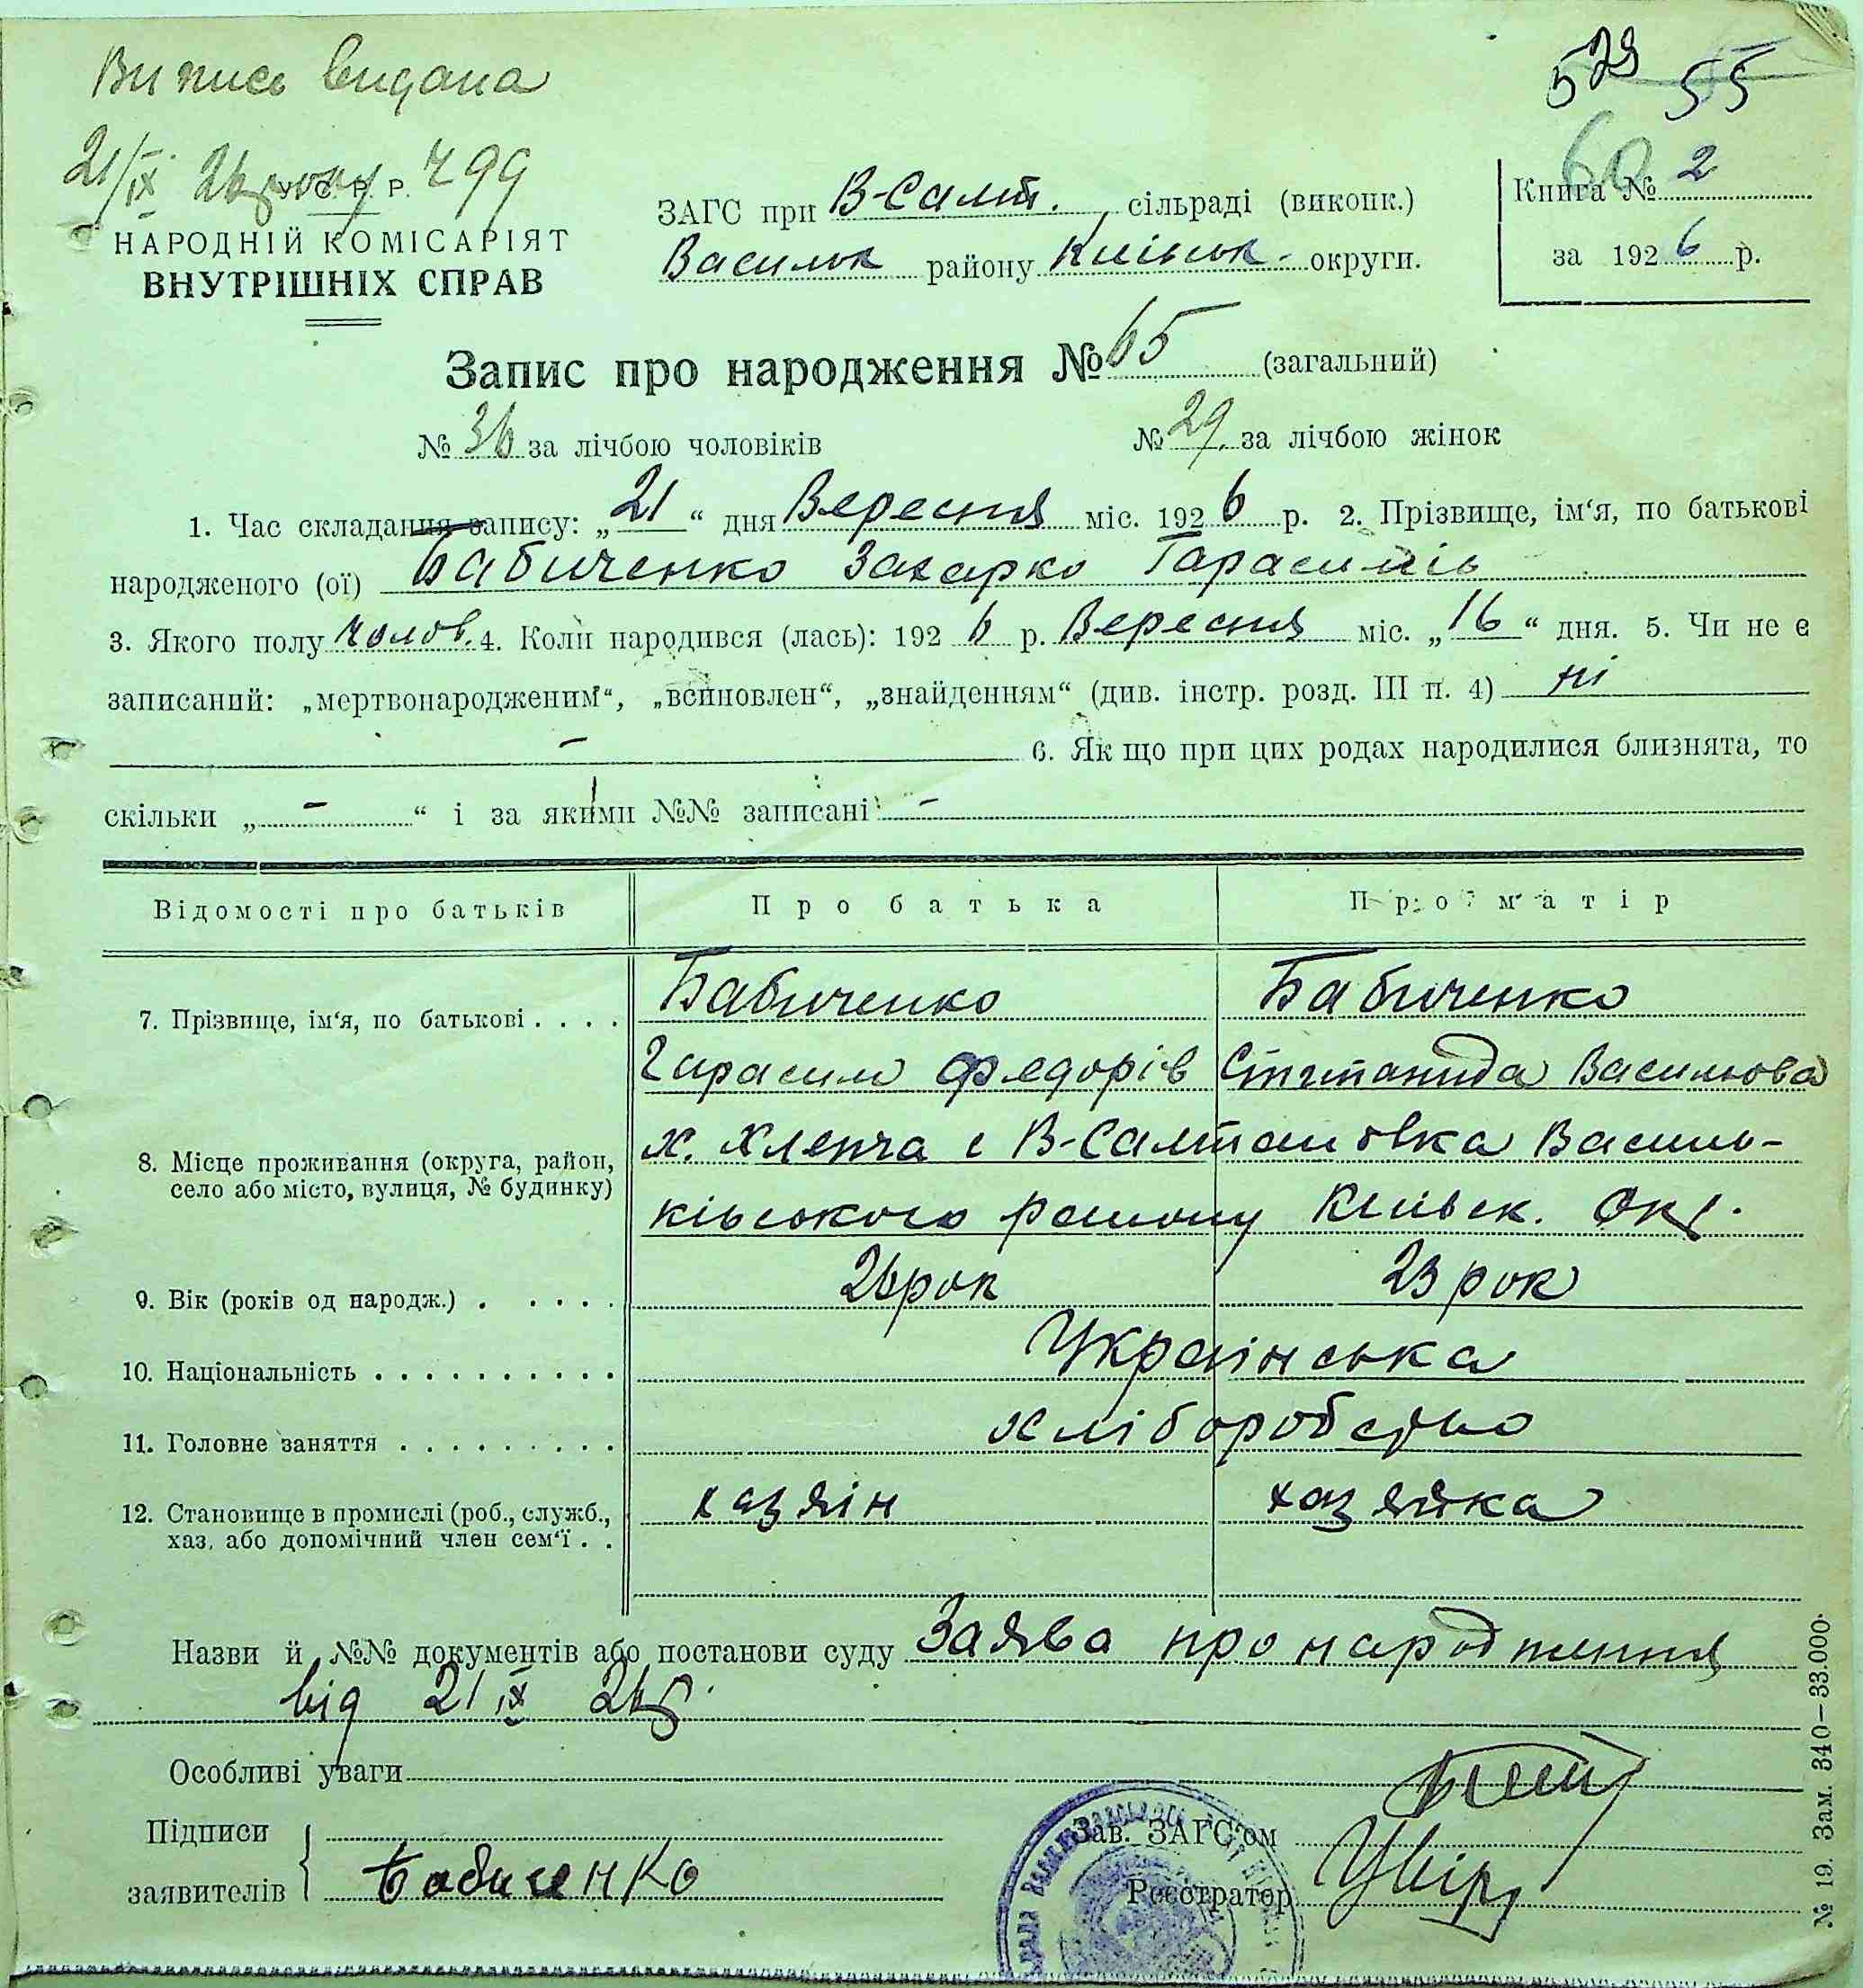 Випись видана
529 55
21/ІХ 26 року 499
60
У. С. Р. Р.
НАРОДНІЙ КОМІСАРІЯТ
ВНУТРІШНІХ СПРАВ
ЗАГС при В-Салт. сільраді (виконк.)
Васильк району Київськ. округи.
Книга № 2
за 1926 р.
Запис про народження № 65 (загальний)
№ 36 за лічбою чоловіків № 29 за лічбою жінок
1. Час складання запису: „21“ дня Вересня міс. 1926 р. 2. Прізвище, ім‘я, по батькові
народженого (ої) Бабиченко Захарко Гарасимів
3. Якого полу чолов. 4. Коли народився (лась): 1926 р. Вересня міс. „16“ дня. 5. Чи не є
записаний: „мертвонародженим“, „всиновлен“, „знайденням“ (див. інстр. розд. III п. 4) ні
– 6. Як що при цих родах народилися близнята, то
скільки „ – “ і за якими №№ записані –
Відомості про батьків Про батька Про матір
7. Прізвище, ім‘я, по батькові . . . . Бабиченко Бабиченко
Гарасим Федорів Степанида Василюва
8. Місце проживання (округа, район, село або місто, вулиця, № будинку) х. Хлепча с В-Салтановка Василь-
ківського району Київськ. Окр.
9. Вік (років од народж.) . . . . . 26 рок 23 рок
10. Національність . . . . . . . . . . Українська
11. Головне заняття . . . . . . . . . хліборобство
12. Становище в промислі (роб., служб., хазяін хазяйка
хаз. або допомічний член сем‘ї . .
Назви й №№ документів або постанови суду Заява про народження
від 21 ІХ 26 р.
Особливі уваги
Підписи
заявителів Бабиченко
Зав. ЗАГС‘ом
Реєстратор
№ 19. Зам. 340—33.000.